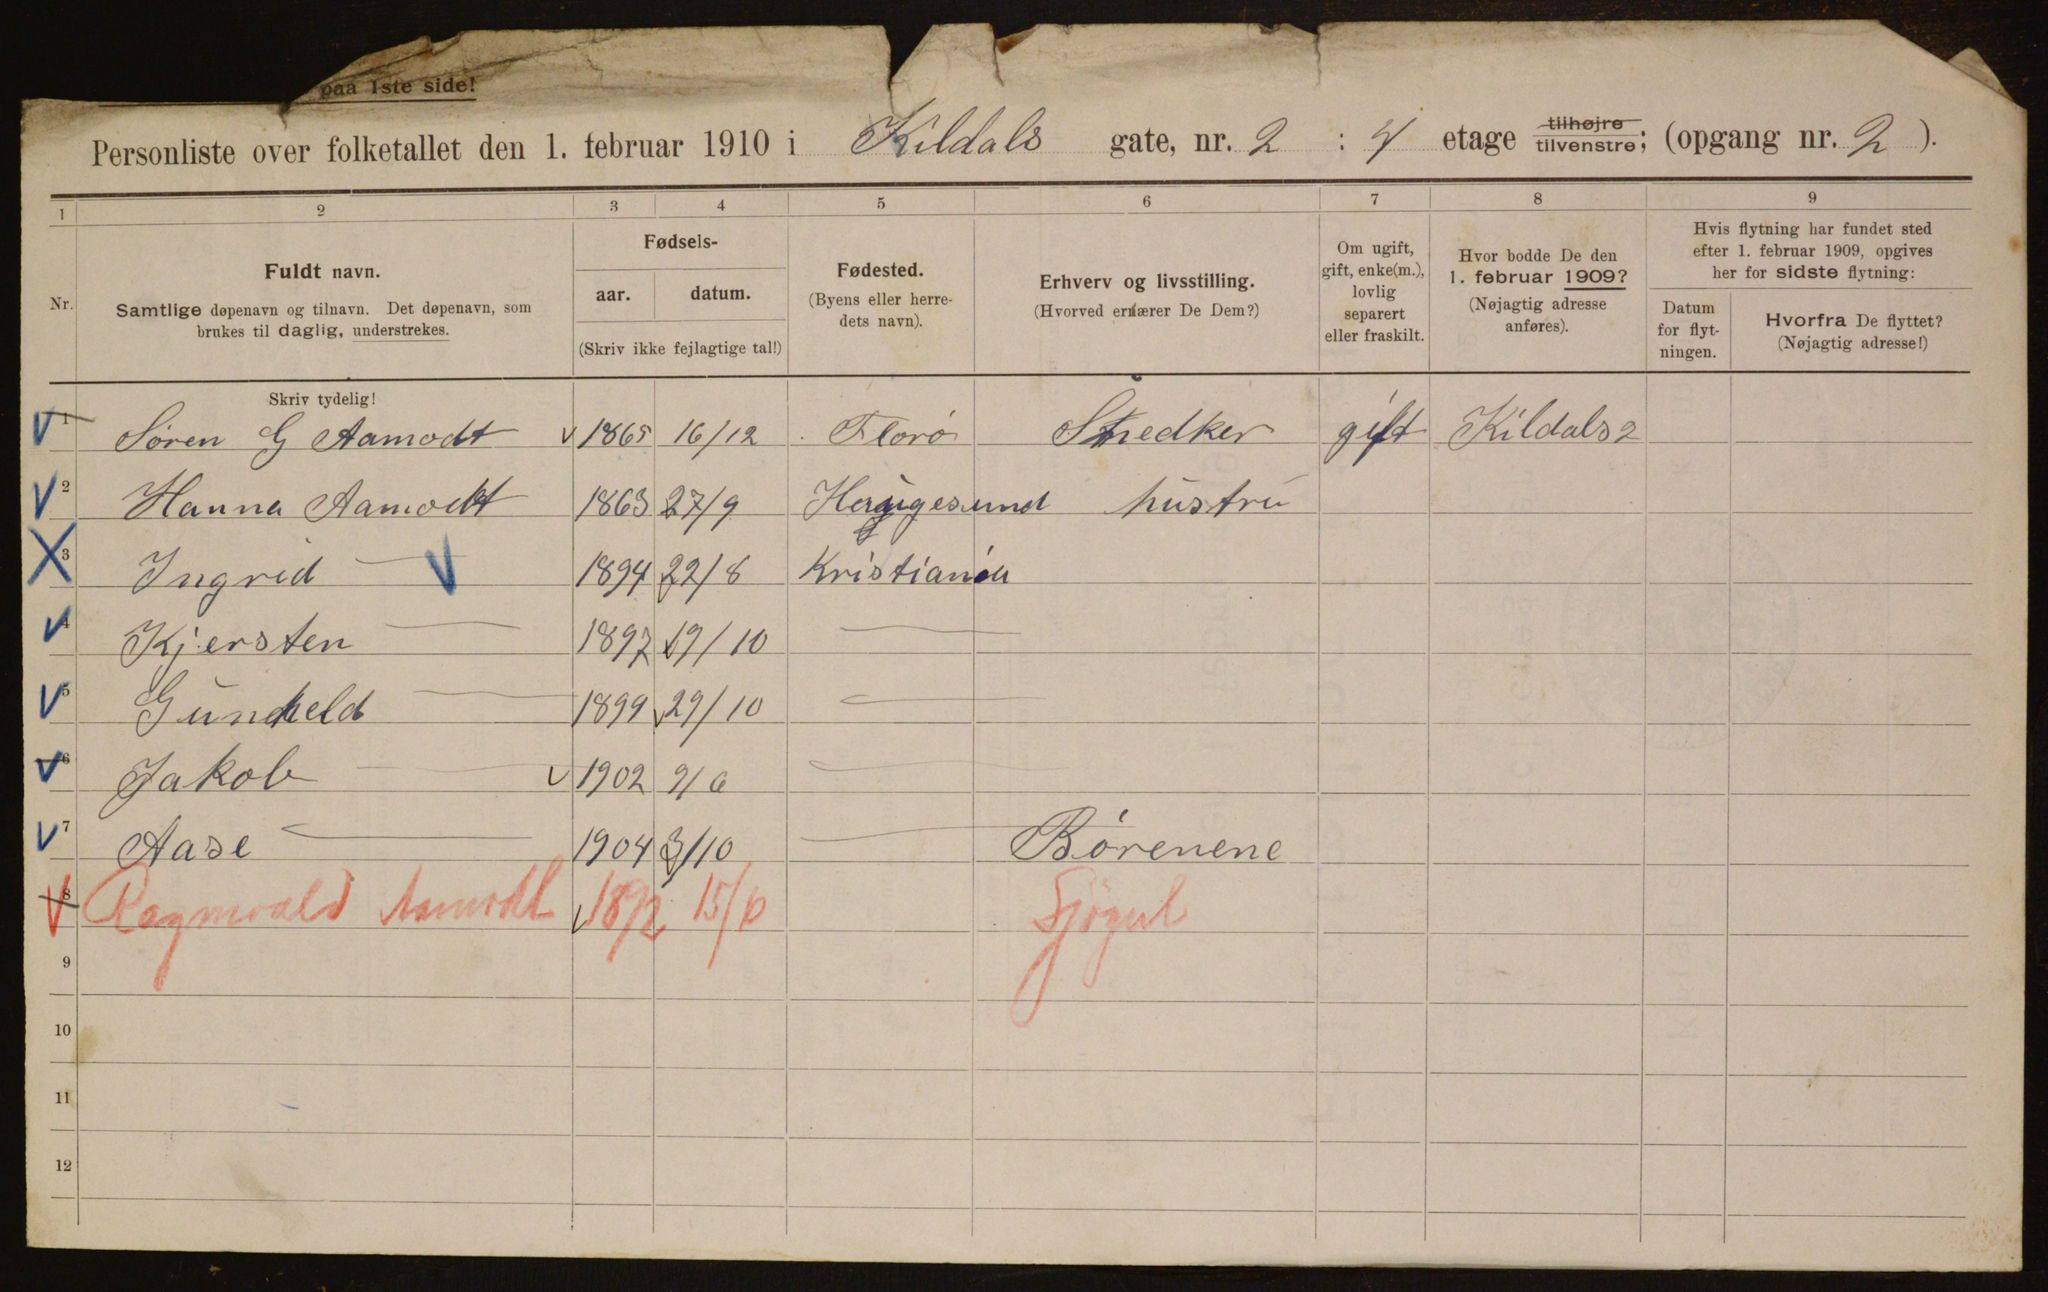 paa 1ste side!
Personliste over folketallet den 1. februar 1910 i Kildals gate, nr. 2 : 4 etage tilhøjre tilvenstre; (opgang nr. 2 ).
1 2 3 4 5 6 7 8 9
Nr.
Fuldt navn.
Samtlige døpenavn og tilnavn. Det døpenavn, som
brukes til daglig, understrekes.
Fødsels-
aar. datum.
(Skriv ikke fejlagtige tal!)
Fødested.
(Byens eller herre-
dets navn).
Erhverv og livsstilling.
(Hvorved ernærer De Dem?)
Om ugift,
gift, enke(m.),
lovlig
separert
eller fraskilt.
Hvor bodde De den
1. februar 1909?
(Nøjagtig adresse
anføres).
Hvis flytning har fundet sted
efter 1. februar 1909, opgives
her for sidste flytning:
Datum
for flyt-
ningen.
Hvorfra De flyttet?
(Nøjagtig adresse!)
Skriv tydelig!
1 Søren G Aamodt 1865 16/12 Florø gift Kildals 2
2 Hanna Aamodt 1863 27/9 Haugesund hustru
3 Ingrid 1894 22/8 Kristiania
4 Kjersten 1897 19/10
5 Gunheld 1899 29/10
6 Jakob 1902 9/6
7 Aase 1904 3/10 Børenene
8 Ragnvald Aamodt 1892 15/6 Sjøgut
9
10
11
12